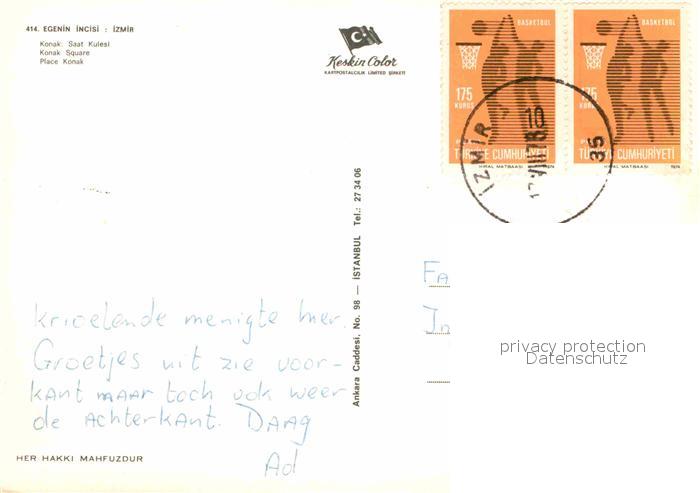 414. EGENİN İNCİSİ : İZMİR
Konak: Saat Kulesi
Konak Square
Place Konak
Keskin Color
KARTPOSTALCILIK LIMITED ŞİRKETİ
BASKETBOL
175
KURUŞ
TÜRKİYE CUMHURİYETİ
HİLAL MATBAASI 1974
BASKETBOL
175
KURUŞ
TÜRKİYE CUMHURİYETİ
HİLAL MATBAASI 1974
İZMİR
35
10
Ankara Caddesi, No. 98 — İSTANBUL Tel.: 27 34 06
krioelende menigte hier.
Groetjes uit zie voor-
kant maar toch ook weer
de achterkant. Daag
Ad
Fa
In
privacy protection
Datenschutz
HER HAKKI MAHFUZDUR